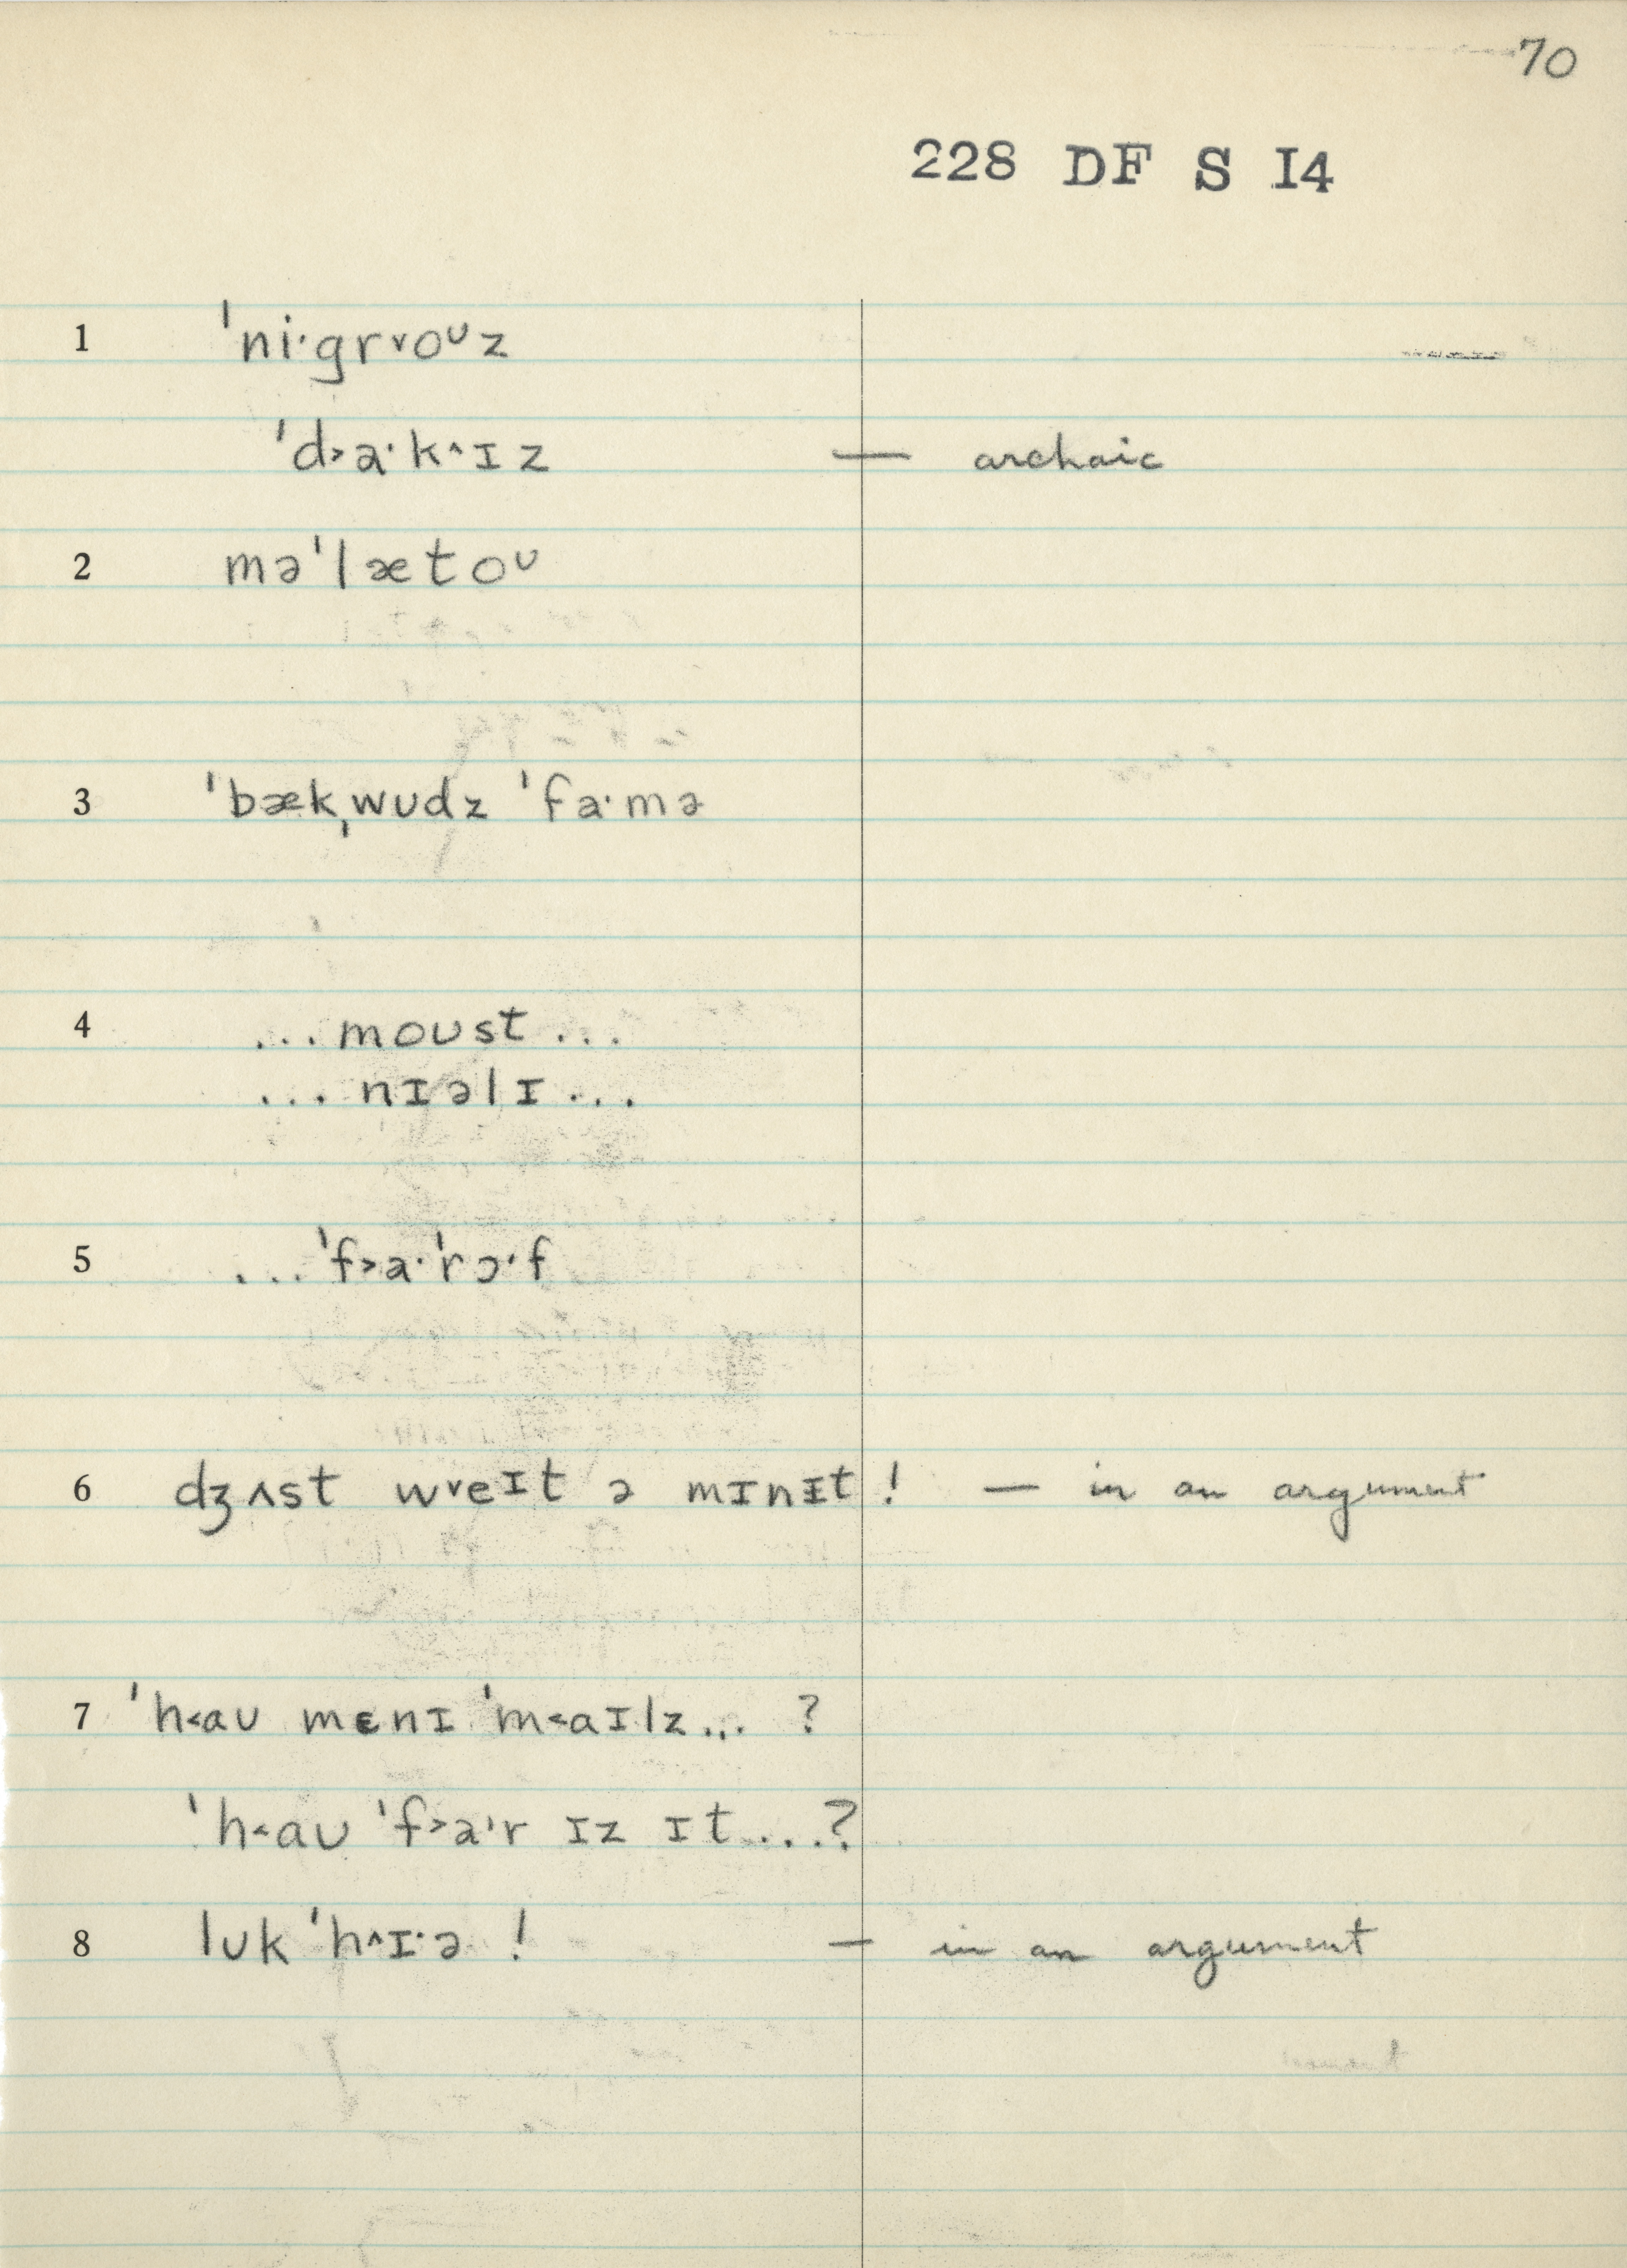 70
228 DF S I4
1 ˈni·gr˅oᶷz
ˈd˃a·k^ɪz — archaic
2 məˈlætoᶷ
3 ˈbækˌwʊdz ˈfa·mə
4 ...moʊst...
...nɪəlɪ...
5 ...ˈf˃a·ˈrɔ·f
6 dʒʌst w˅eɪt ə mɪnɪt! — in an argument
7 ˈh˂aʊ mɛnɪ ˈm˂aɪlz...?
ˈh˂aʊ ˈf˃a·r ɪz ɪt...?
8 lʊk ˈh^ɪ·ə! — in an argument